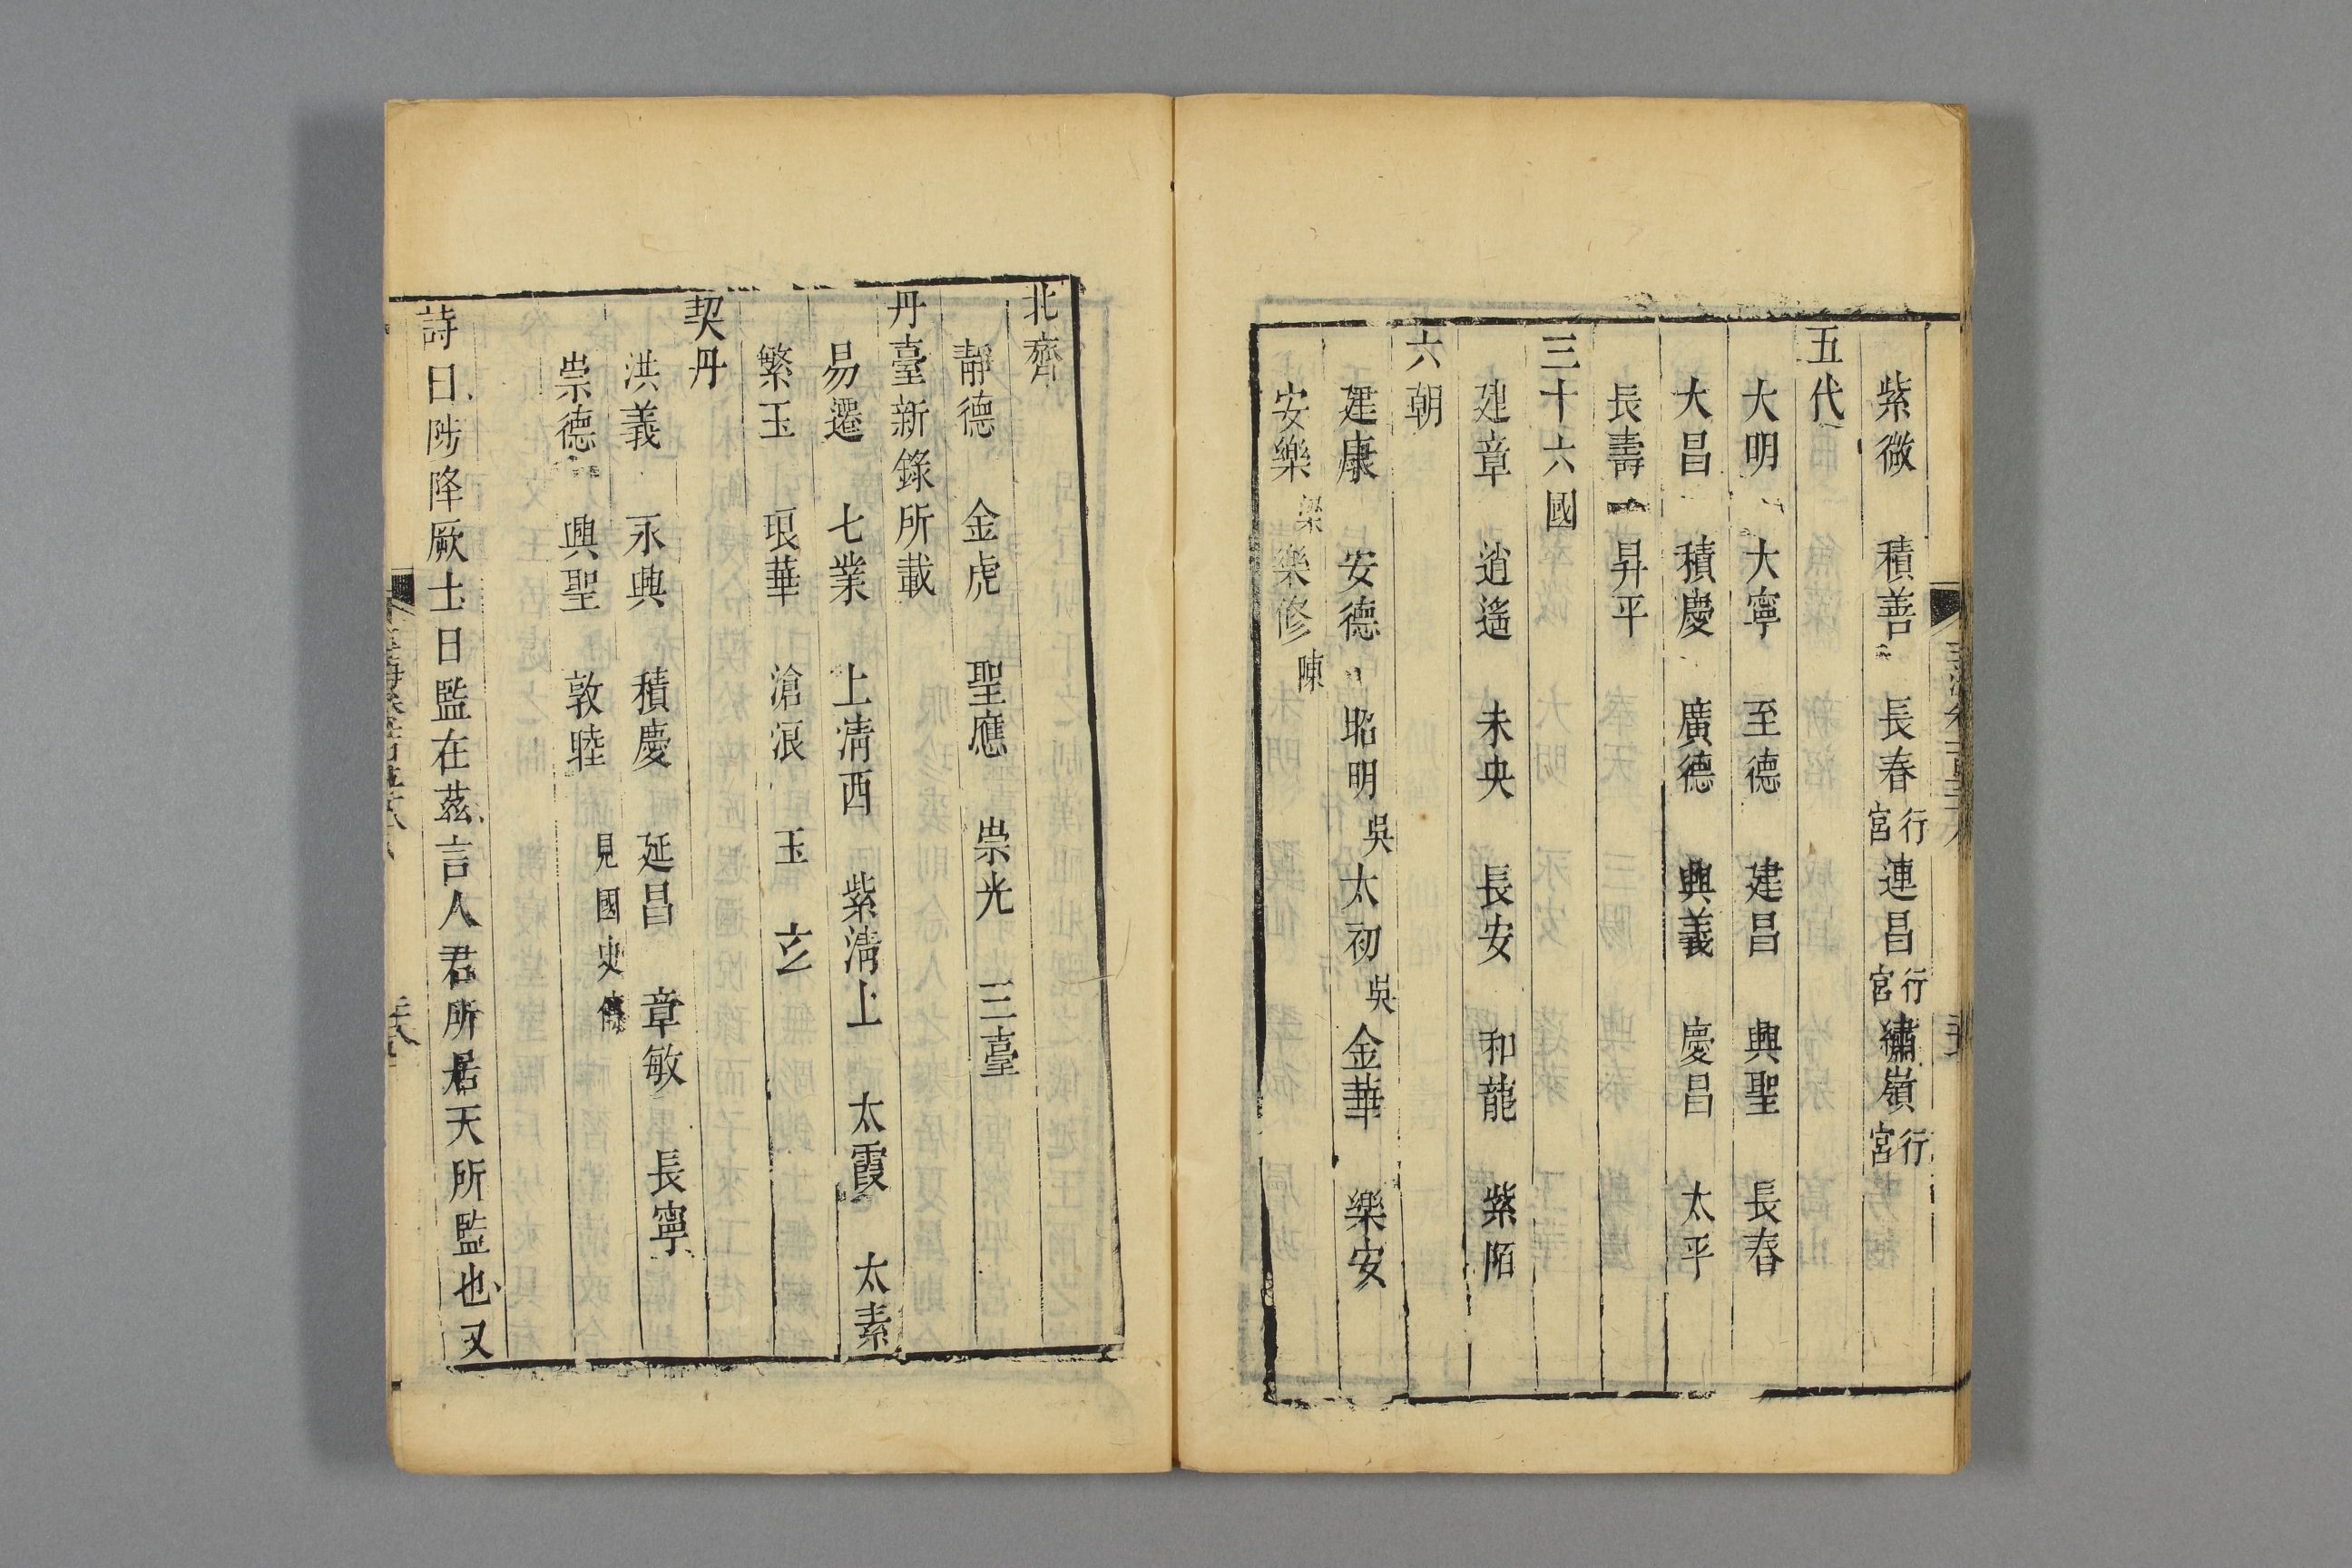 紫微　積善　長春行宮連昌行宮繡嶺行宮
五代
大明　大寧　至德　建昌　興聖　長春
大昌　積慶　廣德　興義　慶昌　太平
長壽　昇平
三十六國
建章　逍遙　未央　長安　和龍　紫陌
六朝
建康　安德　昭明吳太初吳金華　樂安
安樂梁樂修陳
北齊
靜德　金虎　聖應　崇光　三臺
丹臺新錄所載
易遷　七業　上清西　紫清上　太霞　太素
繁玉　琅華　滄浪　玉　玄
契丹
洪義　永興　積慶　延昌　章敏　長寧
崇德　興聖　敦睦　見國史傳
詩曰陟降厥士日監在茲言人君所居天所監也又